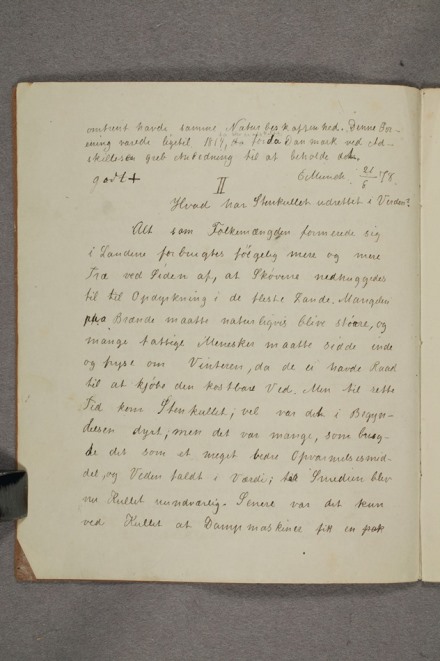 omtrent havde samme Naturbeskaffenhed. Denne For-
ening varede ligetil 1814, da Danmark ved Ad-
skillelsen greb Anledning til at beholde dem.
godt+ EMunch 21/5 78.
II
Hvad har Stenkullet udrettet i Verden?
Alt som Folkemængden formerede sig
i Landene forbrugtes følgelig mere og mere
Træ ved Siden af, at Skovene nedhuggedes
til til Opdyrkning i de fleste Lande. Mangden
paa Brænde maatte naturligvis blive større, og
mange fattige Mennesker maatte sidde inde
og fryse om Vinteren, da de ei havde Raad
til at kjøbe den kostbare Ved. Men til rette
Tid kom Stenkullet; vel var det i Begyn-
delsen dyrt, men det var mange, som brug-
te det som et meget bedre Opvarmelsesmid-
del, og Veden faldt i Værdi; Smedien blev
nu Kullet uundværlig. Senere var det kun
ved Kullet at Dampmaskinen fik en